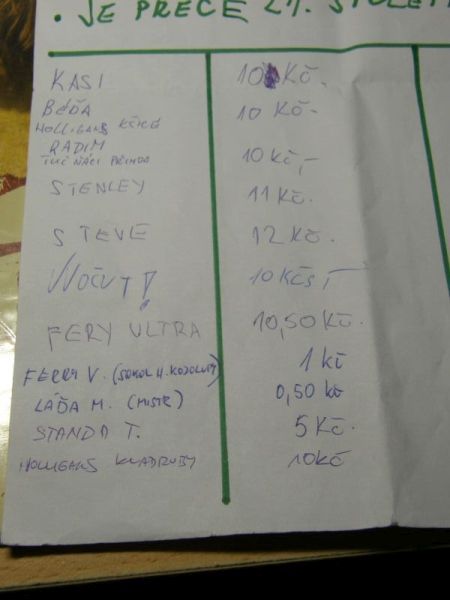 • JE PŘECE 21. STOLET
KASI 10 Kč.
BÉĎA 10 Kč.
HOLLIGANS
RADIM 10 Kč,-
TUČŇÁCI PŘIMDA
STENLEY 11 Kč.
STEVE 12 Kč.
10 Kčs,-
FERY ULTRA 10,50 Kč.
FERRY V. (SOKOL H. KOZOLUPY) 1 kč
LÁĎA M. (MISTR) 0,50 kč
STANDA T. 5 Kč.
HOLLIGANS KLADRUBY 10Kč